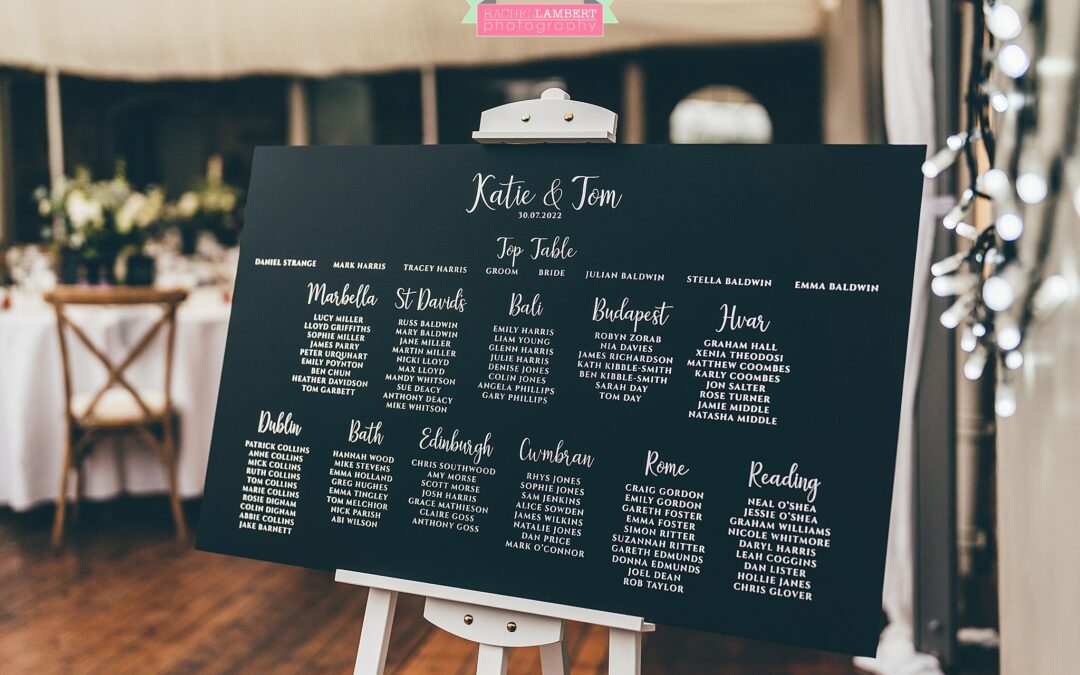 RACHEL LAMBERT
photography
Katie & Tom
30.07.2022
Top Table
DANIEL STRANGE MARK HARRIS TRACEY HARRIS GROOM BRIDE JULIAN BALDWIN STELLA BALDWIN EMMA BALDWIN
Marbella
LUCY MILLER
LLOYD GRIFFITHS
SOPHIE MILLER
JAMES PARRY
PETER URQUHART
EMILY POYNTON
BEN CHUN
HEATHER DAVIDSON
TOM GARBETT
St Davids
RUSS BALDWIN
MARY BALDWIN
JANE MILLER
MARTIN MILLER
NICKI LLOYD
MAX LLOYD
MANDY WHITSON
SUE DEACY
ANTHONY DEACY
MIKE WHITSON
Bali
EMILY HARRIS
LIAM YOUNG
GLENN HARRIS
JULIE HARRIS
DENISE JONES
COLIN JONES
ANGELA PHILLIPS
GARY PHILLIPS
Budapest
ROBYN ZORAB
NIA DAVIES
JAMES RICHARDSON
KATH KIBBLE-SMITH
BEN KIBBLE-SMITH
SARAH DAY
TOM DAY
Hvar
GRAHAM HALL
XENIA THEODOSI
MATTHEW COOMBES
KARLY COOMBES
JON SALTER
ROSE TURNER
JAMIE MIDDLE
NATASHA MIDDLE
Dublin
PATRICK COLLINS
ANNE COLLINS
MICK COLLINS
RUTH COLLINS
TOM COLLINS
MARIE COLLINS
ROSIE DIGNAM
COLIN DIGNAM
ABBIE COLLINS
JAKE BARNETT
Bath
HANNAH WOOD
MIKE STEVENS
EMMA HOLLAND
GREG HUGHES
EMMA TINGLEY
TOM MELCHIOR
NICK PARISH
ABI WILSON
Edinburgh
CHRIS SOUTHWOOD
AMY MORSE
SCOTT MORSE
JOSH HARRIS
GRACE MATHIESON
CLAIRE GOSS
ANTHONY GOSS
Cwmbran
RHYS JONES
SOPHIE JONES
SAM JENKINS
ALICE SOWDEN
JAMES WILKINS
NATALIE JONES
DAN PRICE
MARK O'CONNOR
Rome
CRAIG GORDON
EMILY GORDON
GARETH FOSTER
EMMA FOSTER
SIMON RITTER
SUZANNAH RITTER
GARETH EDMUNDS
DONNA EDMUNDS
JOEL DEAN
ROB TAYLOR
Reading
NEAL O'SHEA
JESSIE O'SHEA
GRAHAM WILLIAMS
NICOLE WHITMORE
DARYL HARRIS
LEAH COGGINS
DAN LISTER
HOLLIE JANES
CHRIS GLOVER